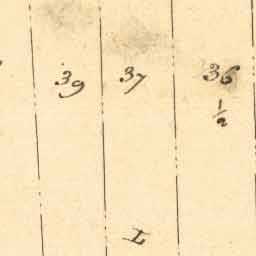 39 37 36
1/2
L